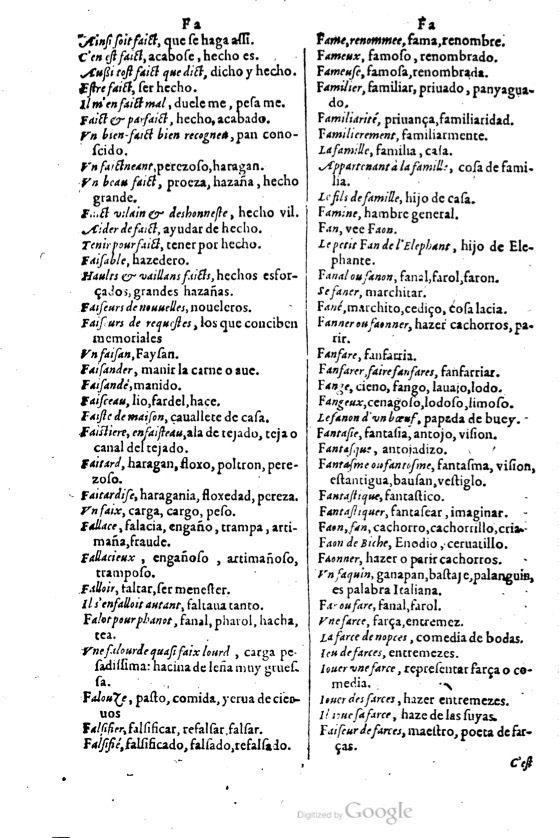 Fa
Ainsi soit faict, que se haga assi.
C'en est faict, acabose, hecho es.
Aussi tost faict que dict, dicho y hecho.
Estre faict, ser hecho.
Il m'en faict mal, duele me, pesa me.
Faict & parfaict, hecho, acabado.
Vn bien-faict bien recogneu, pan cono-
scido.
Vn faictneant, perezoso, haragan.
Vn beau faict, proeza, hazaña, hecho
grande.
Faict vilain & deshonneste, hecho vil.
Aider de faict, ayudar de hecho.
Tenir pour faict, tener por hecho.
Faisable, hazedero.
Haults & vaillans faicts, hechos esfor-
çados, grandes hazañas.
Faiseurs de nouuelles, noueleros.
Faiseurs de requestes, los que conciben
memoriales
Vn faisan, Faysan.
Faisander, manir la carne o aue.
Faisandé, manido.
Faisceau, lio, fardel, hace.
Faiste de maison, cauallete de casa.
Faistiere, enfaisteau, ala de tejado, teja o
canal del tejado.
Faitard, haragan, floxo, poltron, pere-
zoso.
Faitardise, haragania, floxedad, pereza.
Vn faix, carga, cargo, peso.
Fallace, falacia, engaño, trampa, arti-
maña, fraude.
Fallacieux, engañoso, artimañoso,
tramposo.
Falloir, faltar, ser menester.
Il s'en falloit autant, faltaua tanto.
Falot pour phanot, fanal, pharol, hacha,
tea.
Vne falourde quasi faix lourd, carga pe-
sadissima: hacina de leña muy grues-
sa.
Falouze, pasto, comida, yerua de cien-
uos
Falsifier, falsificar, refalsar, falsar.
Falsifié, falsificado, falsado, refalsado.
Fa
Fame, renommee, fama, renombre.
Fameux, famoso, renombrado.
Fameuse, famosa, renombrada.
Familier, familiar, priuado, panyagua-
do.
Familiarité, priuança, familiaridad.
Familierement, familiarmente.
La famille, familia, casa.
Appartenant à la famille, cosa de fami-
lia.
Le fils de famille, hijo de casa.
Famine, hambre general.
Fan, vee Faon.
Le petit Fan de l'Elephant, hijo de Ele-
phante.
Fanal ou fanon, fanal, farol, faron.
Se faner, marchitar.
Fané, marchito, cediço, cosa lacia.
Fanner ou faonner, hazer cachorros, pa-
rir.
Fanfare, fanfarria.
Fanfarer, faire fanfares, fanfarriar.
Fange, cieno, fango, lauajo, lodo.
Fangeux, cenagoso, lodoso, limoso.
Le fanon d'vn bœuf, papada de buey.
Fantasie, fantasia, antojo, vision.
Fantasque, antojadizo.
Fantasme ou fantosme, fantasma, vision,
estantigua, bausan, vestiglo.
Fantastique, fantastico.
Fantastiquer, fantasear, imaginar.
Faon, fan, cachorro, cachorrillo, cria.
Faon de Biche, Enodio, ceruatillo.
Faonner, hazer o parir cachorros.
Vn faquin, ganapan, bastaje, palanquin,
es palabra Italiana.
Far ou fare, fanal, farol.
Vne farce, farça, entremez.
La farce de nopces, comedia de bodas.
Ieu de farces, entremezes.
Iouer vne farce, representar farça o co-
media.
Iouer des farces, hazer entremezes.
Il ioue sa farce, haze de las suyas.
Faiseur de farces, maestro, poeta de far-
ças.
C'est
Digitized by Google